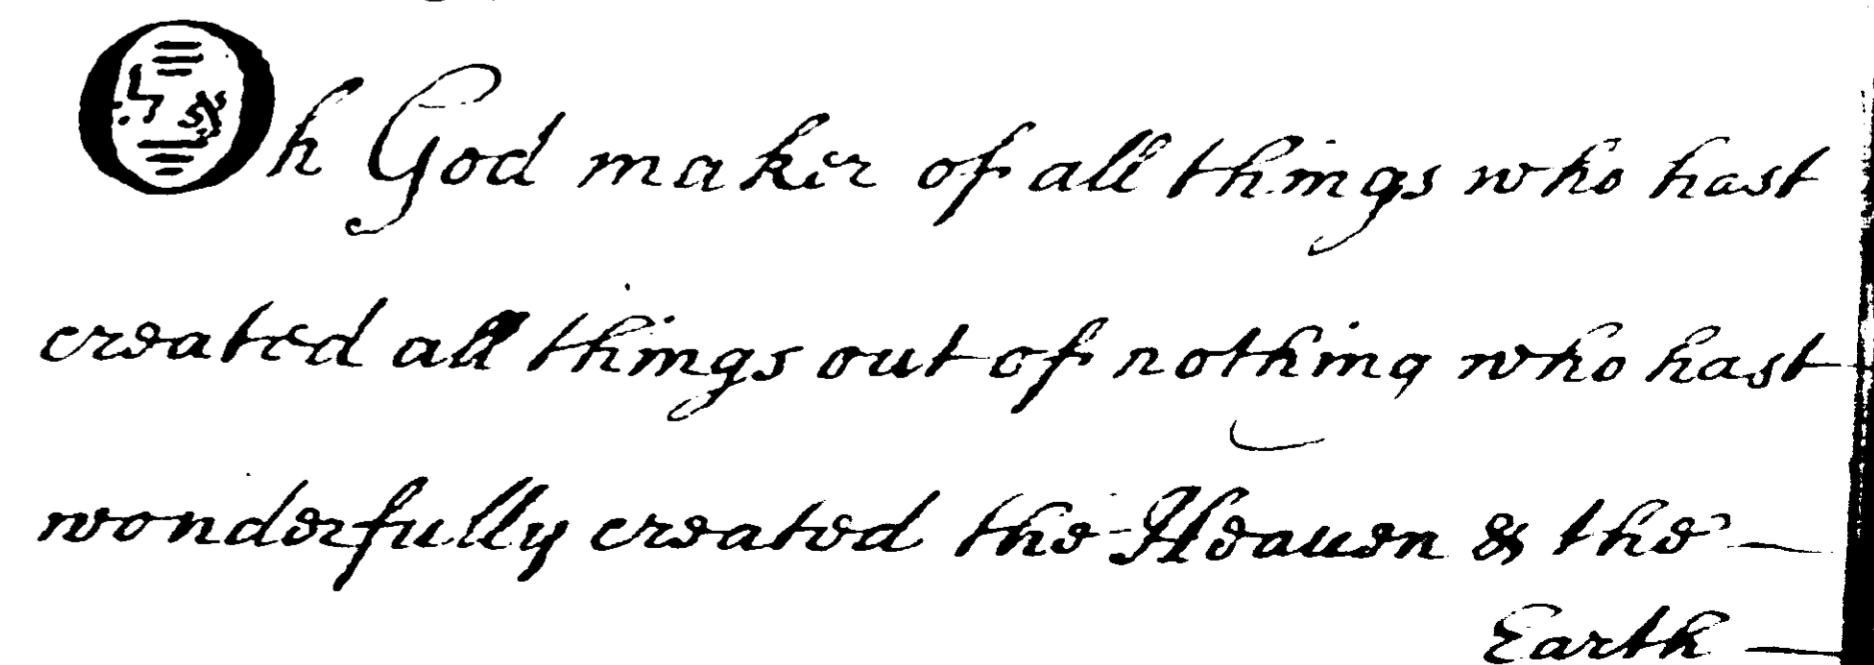 Oh God maker of all things who hast
created all things out of nothing who hast
wonderfully created the Heauen & the
Earth